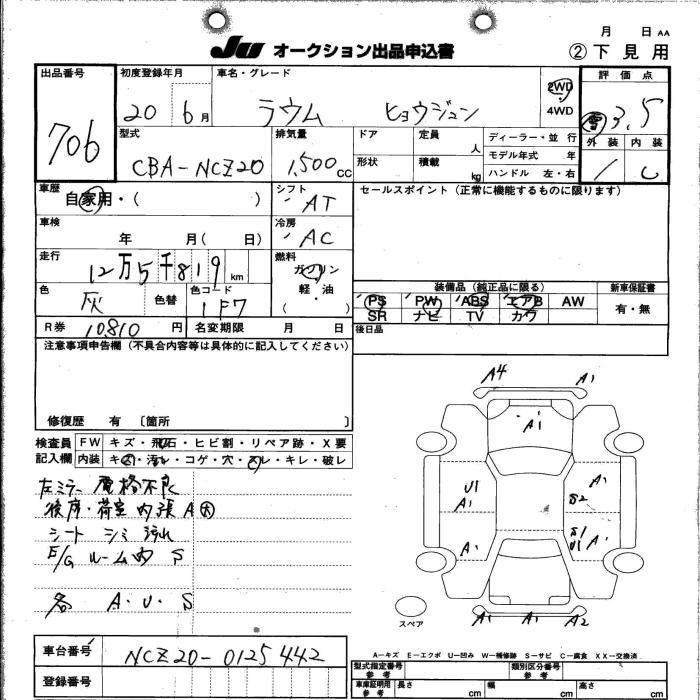 月 日 AA
JU オークション出品申込書 ②下見用
出品番号 初度登録年月 車名・グレード 2WD 4WD 評価点
706 20 6月 ラウム ヒョウジュン 3.5
外装 内装
型式 排気量 ドア 定員 人 ディーラー・並行
CBA-NCZ20 1,500cc 形状 積載 kg モデル年式 年
ハンドル 左・右
車歴 自家用・( ) シフト AT セールスポイント(正常に機能するものに限ります)
車検 年 月( 日) 冷房 AC
走行 12万5千819km 燃料 ガソリン
軽・油
( )
色 灰 色替 色コード 1F7
装備品(純正品に限る) 新車保証書
PS PW ABS エアB AW 有・無
SR ナビ TV カワ
R券 10,810円 名変期限 月 日 後日品
注意事項申告欄(不具合内容等は具体的に記入してください)
修復歴 有 〔箇所 〕
検査員 FW キズ・飛石・ヒビ割・リペア跡・X要
記入欄 内装 キズ・汚レ・コゲ・穴・スレ・キレ・破レ
左ミラー 電格不良
後席・荷室内張A大
シート シミ 汚れ
E/G ルーム内 S
各 A・U・S
A4 A1
A1
U1 A1
A1
S2
A1
S1 U1 A1
A1 A1 A2
スペア
A-キズ E-エクボ U-凹み W-補修跡 S-サビ C-腐食 XX-交換済
車台番号 NCZ20-0125442
型式指定番号 参考 類別区分番号 参考
登録番号
車庫証明用 参考 長さ cm 幅 cm 高さ cm